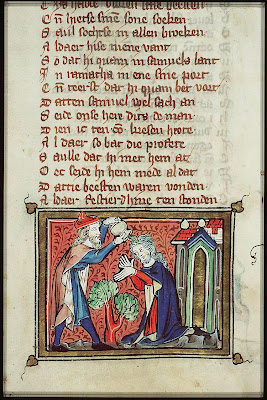 hadde
Cñ hietse sine sone soeken
Saul sochtse in allen broeken
Al daer hise niene vant
So dat hi quam in samuels lant
In ramatha in ene sine port
Cñ teerst dat hi quam bet vort
Datten samuel wel sach an
Seide onse here dits de man
Dien ic kiesen hete
Al daer so bat die profete
Saulle dat hi met hem at
Oec seide hi hem mede al dat
Dattie beesten waren vonden
Al daer festierd hine ten stonden